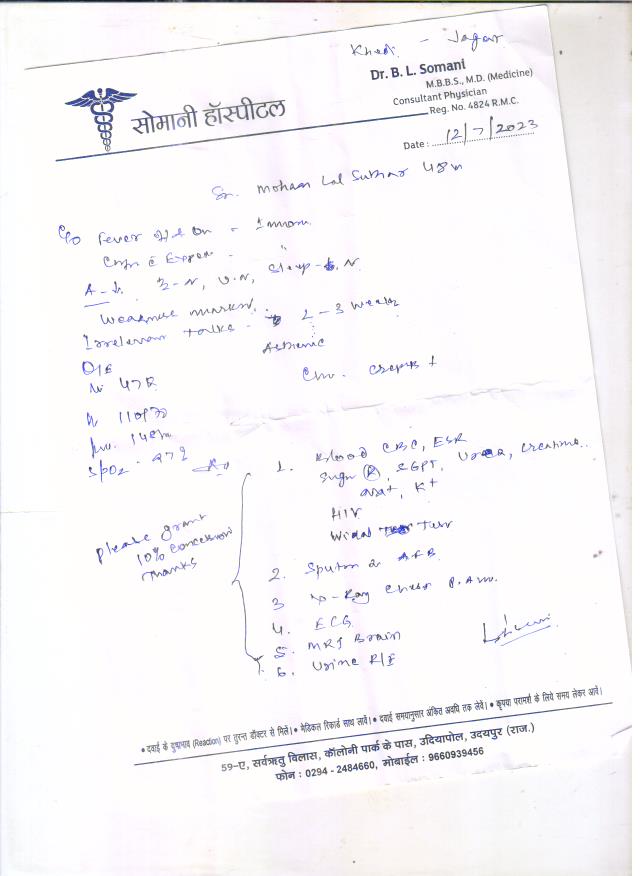 Kheri - Jagar
Dr. B. L. Somani
M.B.B.S., M.D. (Medicine)
Consultant Physician
Reg. No. 4824 R.M.C.
सोमानी हॉस्पीटल
Date : 12/7/2023
Mohan Lal Suthar 48
C/o Fever
A - N, U-N, Sleep - N
Weakness marked
Irrelevant talks - 2-3 weeks
Asthenic
O/E
Wt 47 K
Chest. creps +
110/70
SpO2 - 97 %
1. Blood CBC, ESR
Sugar (R), SGPT, Urea, Creatinine
Na+, K+
HIV
Widal Test
Please grant
10% Concession
Thanks
2. Sputum AFB
3 X-Ray Chest P.A.
4. ECG
5. MRI Brain
6. Urine R/E
• दवाई के दुष्प्रभाव (Reaction) पर तुरन्त डॉक्टर से मिलें। • मेडिकल रिकार्ड साथ लावें। • दवाई समयानुसार अंकित अवधि तक लेवें। • कृपया परामर्श के लिये समय लेकर आवें।
59-ए, सर्वऋतु विलास, कॉलोनी पार्क के पास, उदियापोल, उदयपुर (राज.)
फोन : 0294 - 2484660, मोबाईल : 9660939456